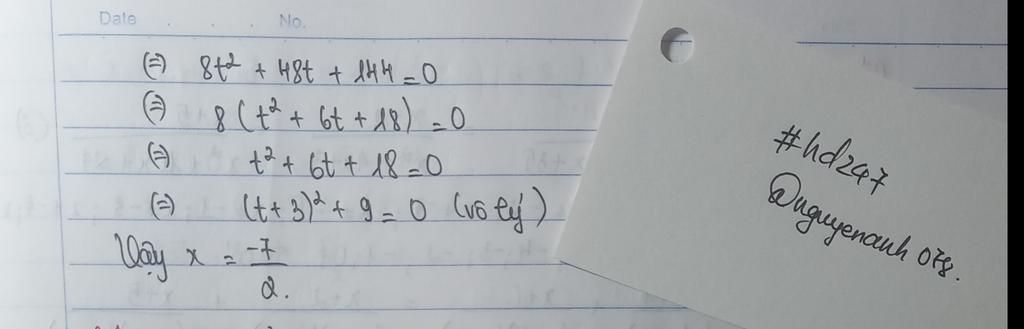 Date . . No.
(=) 8t² + 48t + 144 = 0
(=) 8(t² + 6t + 18) = 0
(=) t² + 6t + 18 = 0
(=) (t + 3)² + 9 = 0 (vô lý)
Vậy x = -7/2.
#hd247
@nguyenanh 078.